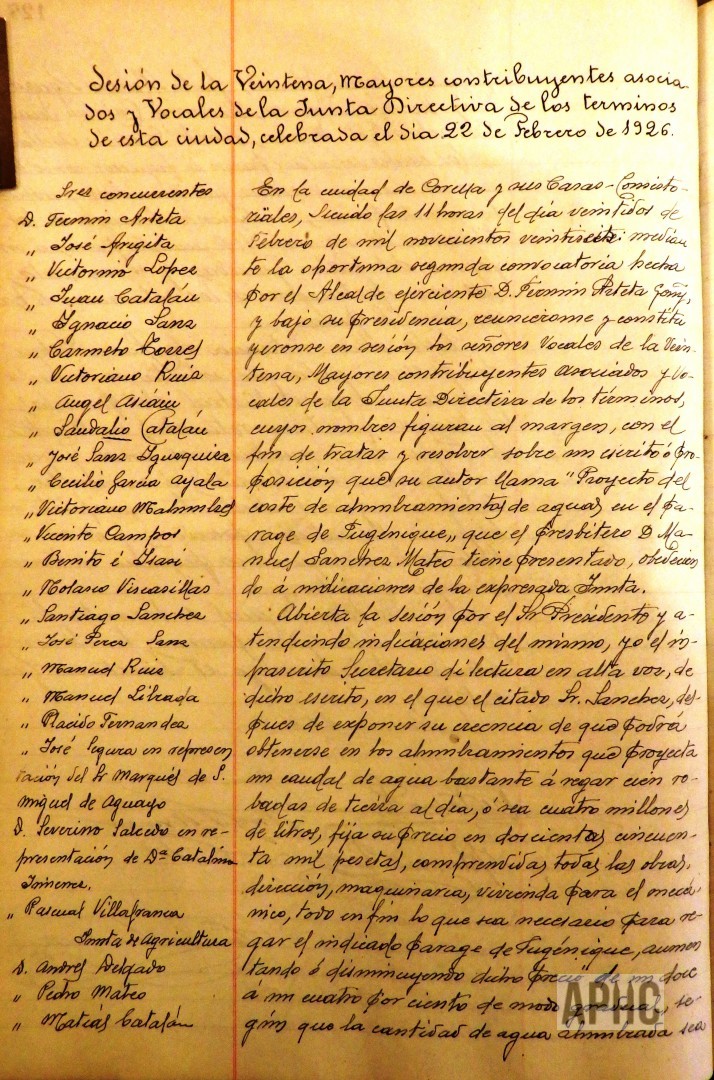 Sesión de la Veintena, Mayores contribuyentes asocia-
dos y Vocales de la Junta Directiva de los terminos
de esta ciudad, celebrada el dia 22 de Febrero de 1926.
Sres concurrentes
D. Fermin Arteta
„ José Arigita
„ Victorino Lopez
„ Juan Catalán
„ Ignacio Sanz
„ Carmelo Torres
„ Victoriano Ruiz
„ Angel Asiain
„ Sandalio Catalán
„ José Sanz Iguaquiza
„ Cecilio Garcia Ayala
„ Victoriano Malumbres
„ Vicente Campos
„ Benito é Isasi
„ Nolasco Viscasillas
„ Santiago Sanchez
„ José Perez Sanz
„ Manuel Ruiz
„ Manuel Librada
„ Placido Fernandez
„ José Segura en represen
tación del Sr Marqués de S.
Miguel de Aguayo
D. Severino Salcedo en re-
presentación de Dª Catalina
Jimenez.
„ Pascual Villafranca
Junta de Agricultura
D. Andres Delgado
„ Pedro Mateo
„ Matias Catalán
En la ciudad de Corella y sus Casas-Consisto-
riales, siendo las 11 horas del día veintidos de
Febrero de mil novecientos veintiseis: median
te la oportuna segunda convocatoria hecha
por el Alcalde ejerciente D. Fermin Arteta Goñi,
y bajo su presidencia, reunieronse y constitu
yeronse en sesión los señores Vocales de la Vein-
tena, Mayores contribuyentes asociados y Vo-
cales de la Junta Directiva de los términos,
cuyos nombres figuran al margen, con el
fin de tratar y resolver sobre un escrito ó pro-
posición que su autor llama "Proyecto del
coste de alumbramientos de aguas en el pa-
rage de Fugénique„ que el presbitero D. Ma-
nuel Sanchez Mateo tiene presentado, obedecien
do á indicaciones de la expresada Junta.
Abierta la sesión por el Sr Presidente y a-
tendiendo indicaciones del mismo, yo el in-
frascrito Secretario di lectura en alta voz, de
dicho escrito, en el que el citado Sr. Sanchez, des-
pues de exponer su creencia de que podrá
obtenerse en los alumbramientos que proyecta
un caudal de agua bastante á regar cien ro-
badas de tierra al día, ó sea cuatro millones
de litros, fija su precio en doscientas cincuen-
ta mil pesetas, comprendidas todas las obras,
dirección, maquinaria, vivienda para el mecá-
nico, todo en fin lo que sea necesario para re-
gar el indicado parage de Fugénique, aumen
tando ó disminuyendo dicho precio de un doce
á un cuatro por ciento de modo gradual, se-
gún que la cantidad de agua alumbrada sea
APHC